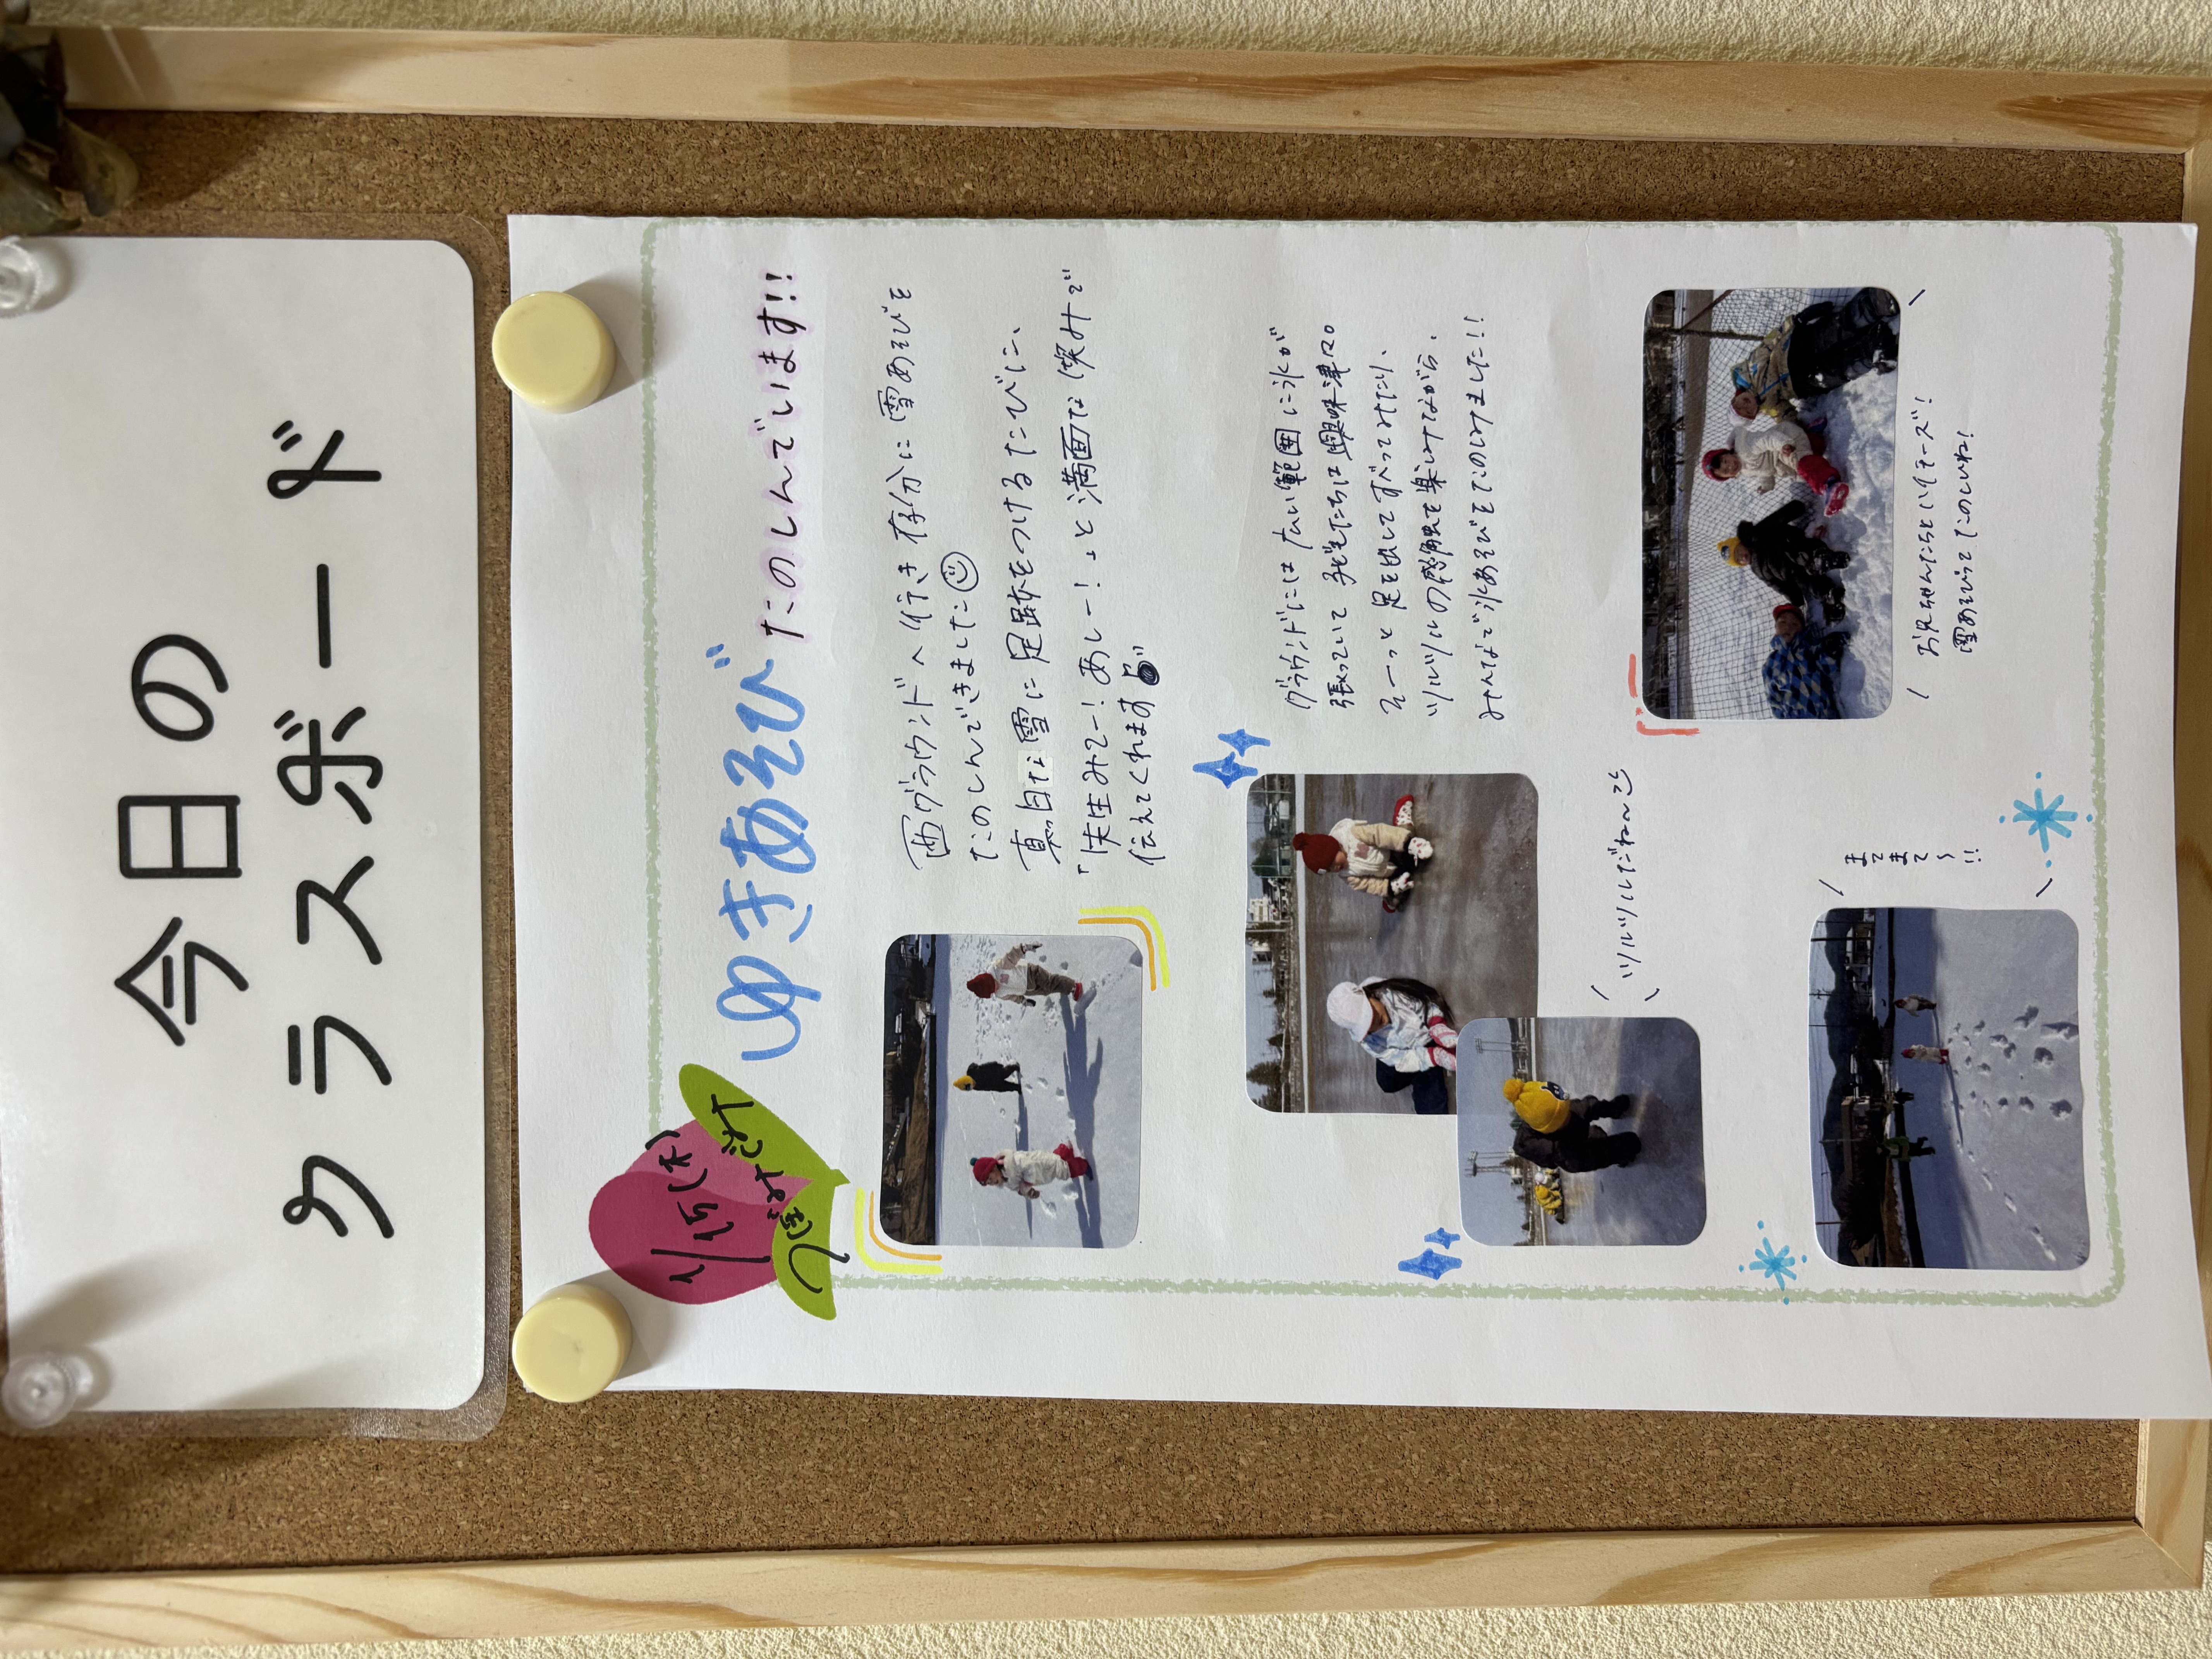 今日の
クラスボード
1/15(木)
つぼみぐみ
ゆきあそび たのしんでいます!!
西グラウンドへ行き存分に雪あそびを
たのしんできました
真白な雪に足跡をつけるたびに、
「先生みてー!あしー!」と満面な笑みで
伝えてくれます
グラウンドには広い範囲に氷が
張っていて子どもたちは興味津々。
そーっと足を出してすべってみたり、
ツルツルの感触を楽しみながら、
みんなで氷あそびをたのしみました!!
ツルツルだね〜
お兄ちゃんたちとハイチーズ!
雪あそびってたのしいね!
まて
まて
〜!!